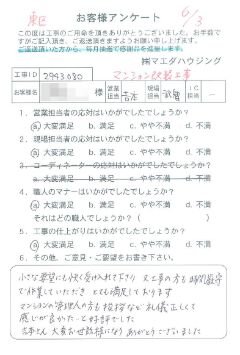 お客様アンケート
6/3
この度は工事のご用命を頂きありがとうございました。お手数で
すがご記入頂き、ご返送頂きますようお願い申し上げます。
ご返送頂いた方から、毎月抽選で感謝品を進呈します。
㈱マエダハウジング
工事ID 2993080 マンション改装工事
様 営業担当 現場担当
1. 営業担当者の応対はいかがでしたでしょうか?
a 大変満足 b. 満足 c. やや不満 d. 不満
2. 現場担当者の応対はいかがでしたでしょうか?
a 大変満足 b. 満足 c. やや不満 d. 不満
3. コーディネーターの応対はいかがでしたでしょうか?
a. 大変満足 b. 満足 c. やや不満 d. 不満
4. 職人のマナーはいかがでしたでしょうか?
a 大変満足 b. 満足 c. やや不満 d. 不満
それはどの職人でしょうか?( )
5. 工事の仕上がりはいかがでしたでしょうか?
a 大変満足 b. 満足 c. やや不満 d. 不満
6. その他、ご意見・ご要望をお書き下さい。
小さな要望にも快く受け入れて下さり 又工事の方も時間厳守
で作業していただき とても満足しております
マンションの管理人の方も挨拶など礼儀正しくて
感じが良かったと好評でした
大変お世話様になりありがとうございました